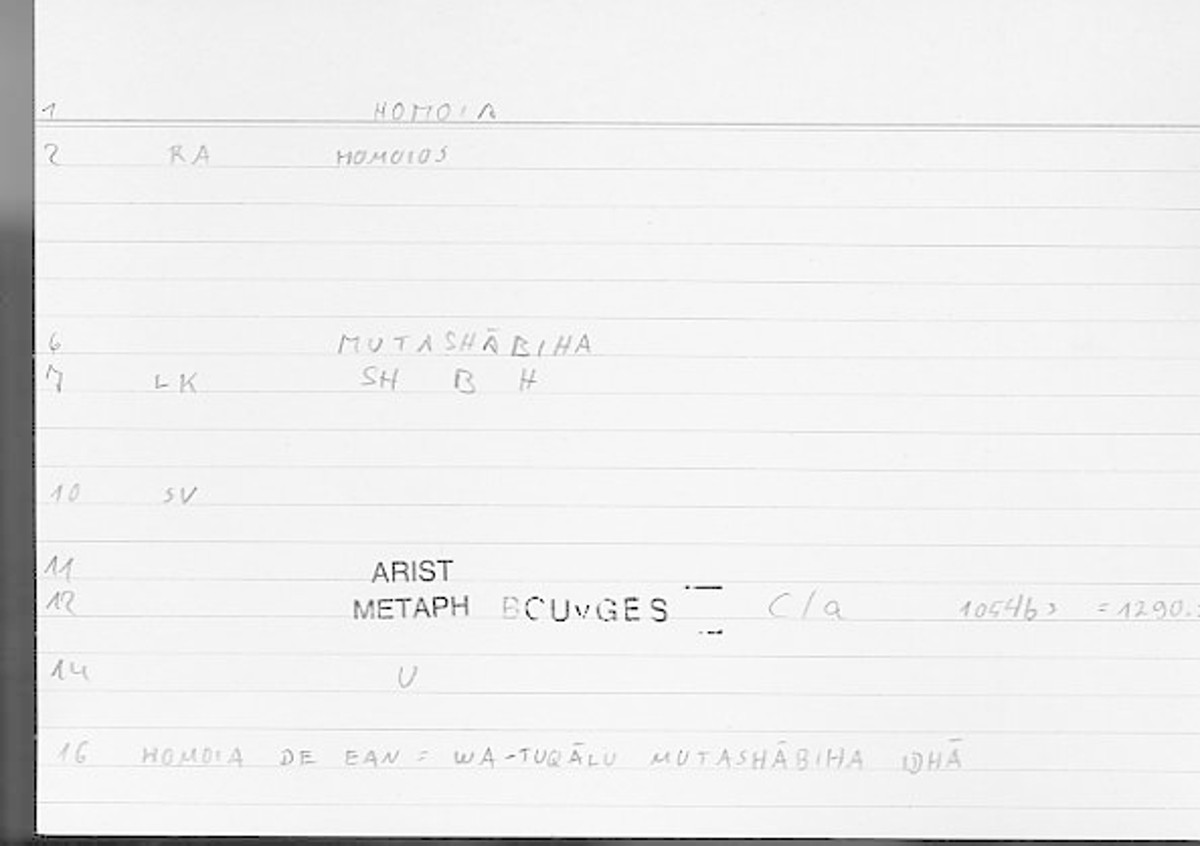 1 HOMOIA
2 RA HOMOIOS
6 MUTASHĀBIHA
7 LK SH B H
10 SV
11 ARIST
12 METAPH BCUvGES C/a 1054b3 =1290.
14 U
16 HOMOIA DE EAN = WA-TUQĀLU MUTASHĀBIHA IDHĀ